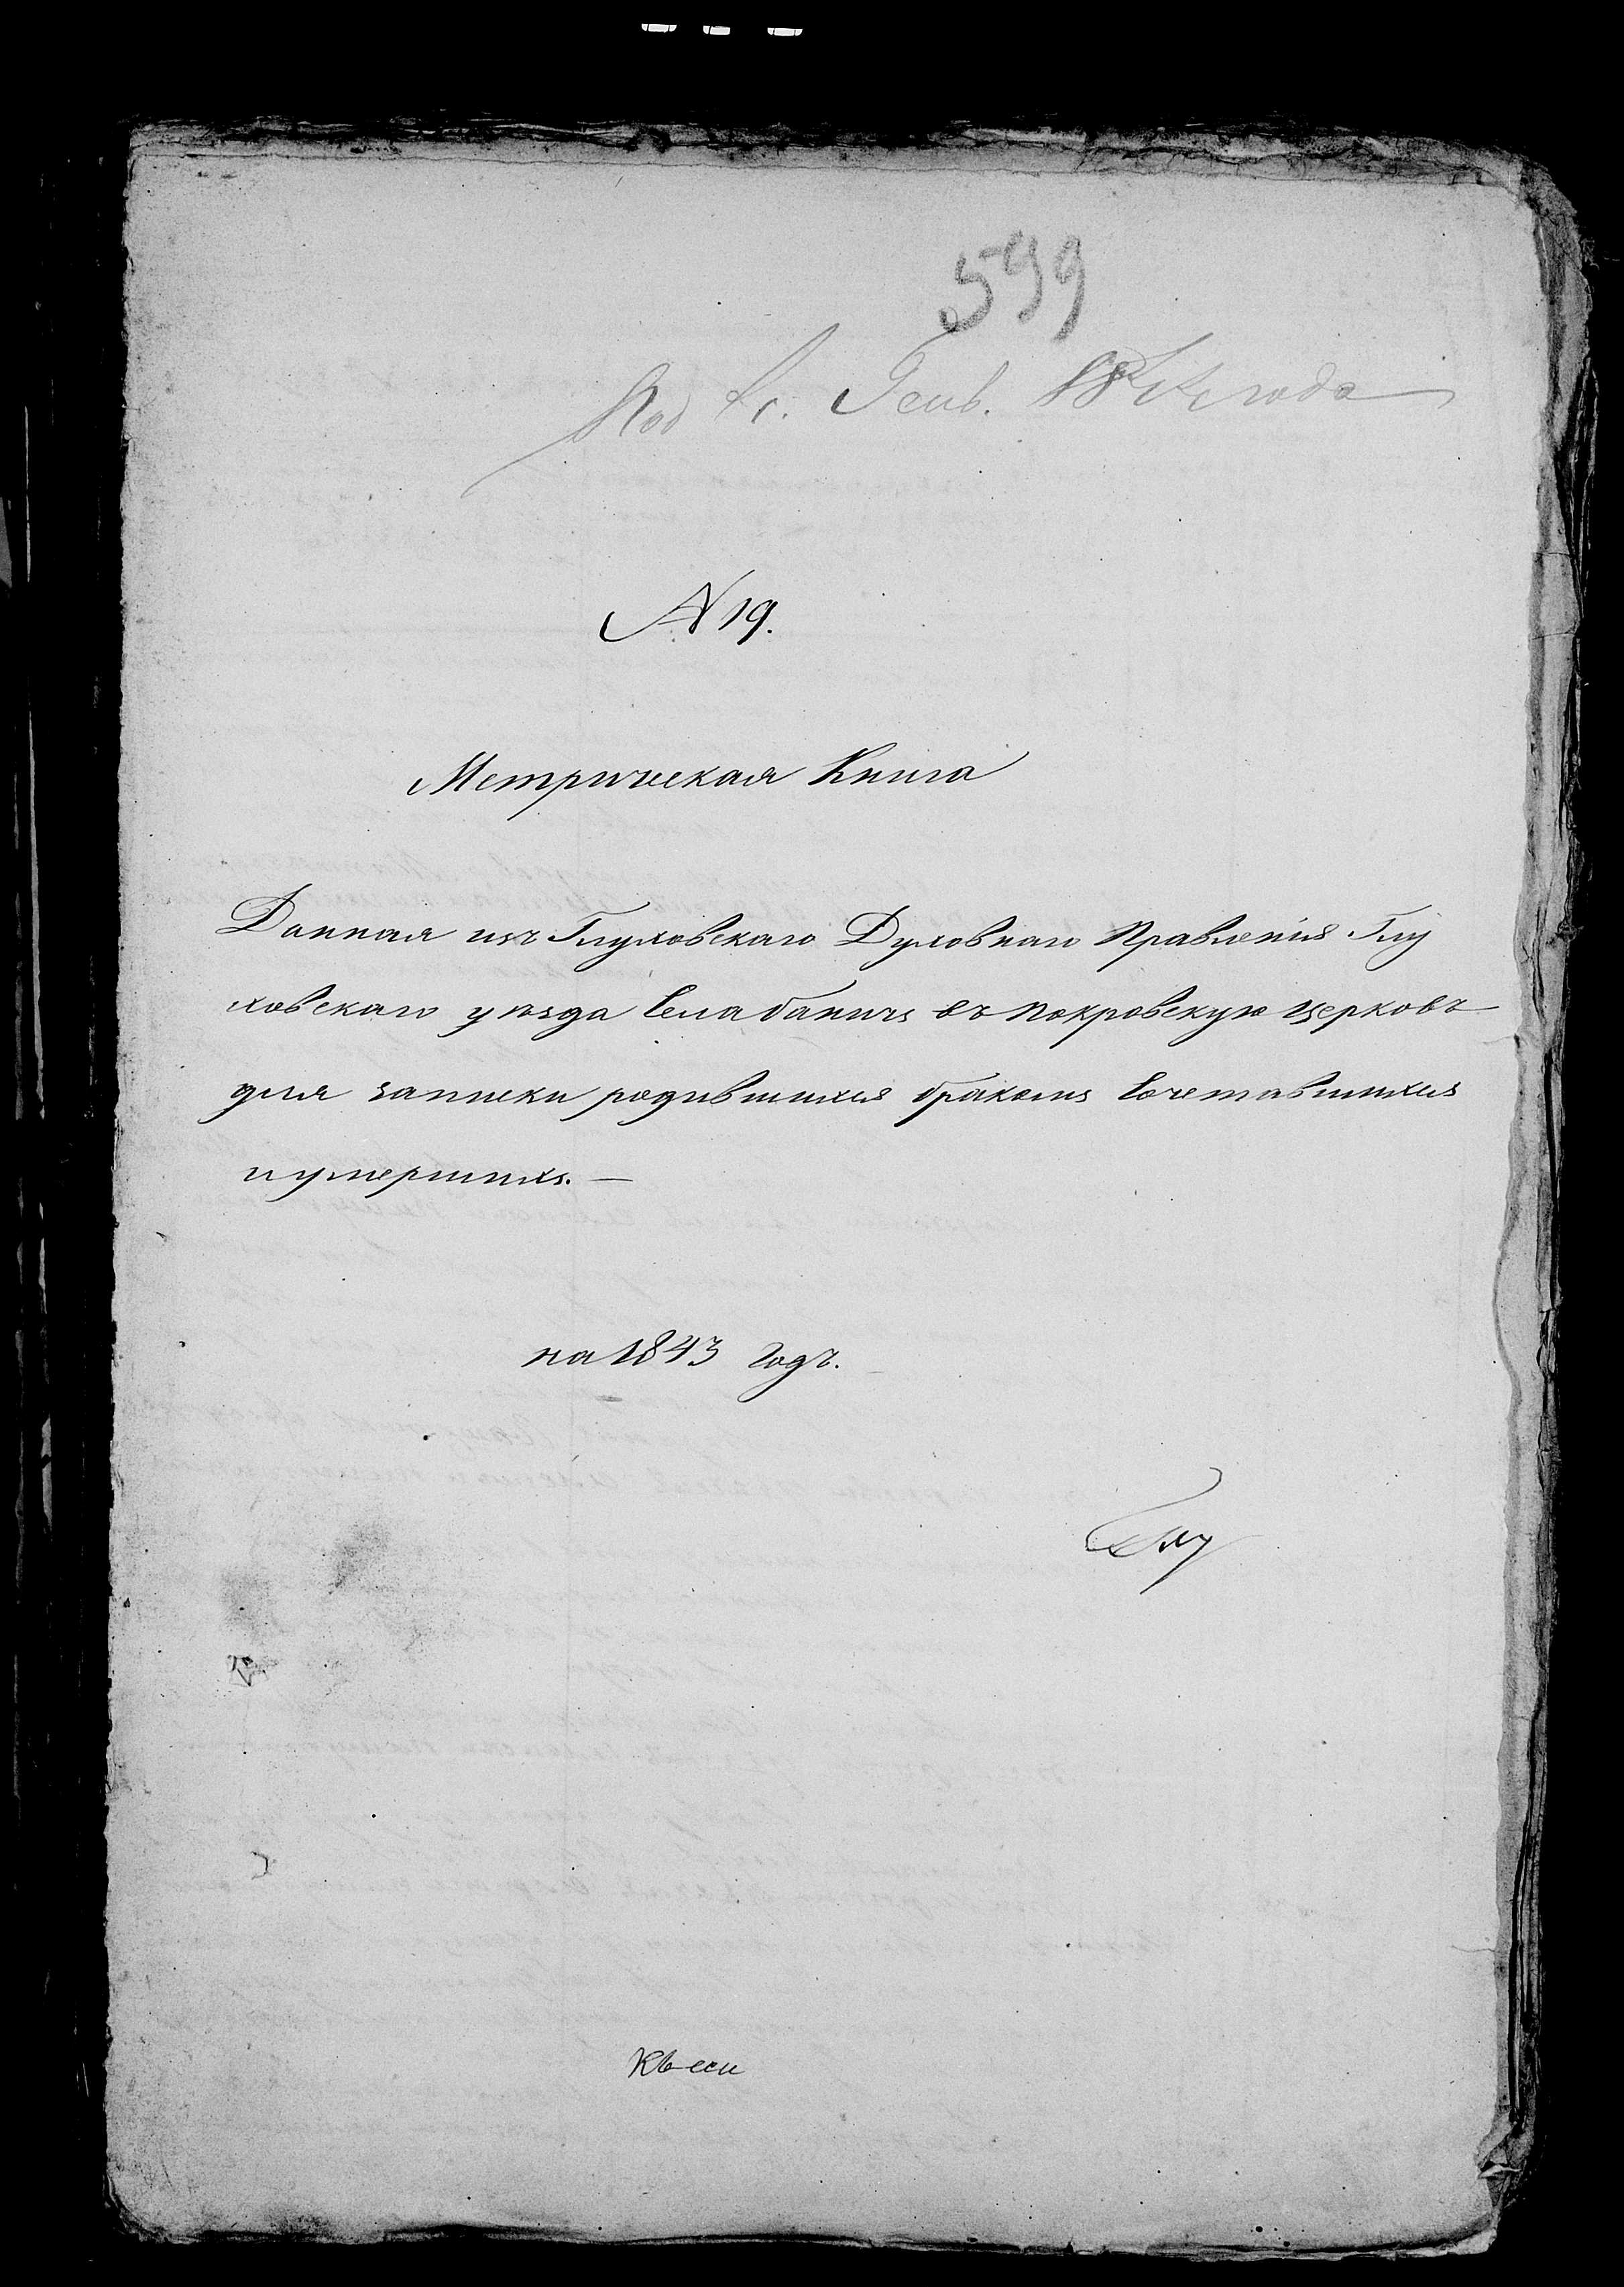 599
Под
№ 19.
Метрическая Книга
Данная изъ Глуховскаго Духовнаго Правленія Глу
ховскаго уѣзда Села баничь въ Покровскую церковъ
для записки родившихся бракомъ Сочетавшихся
и умершихъ. —
на 1843 Годъ.